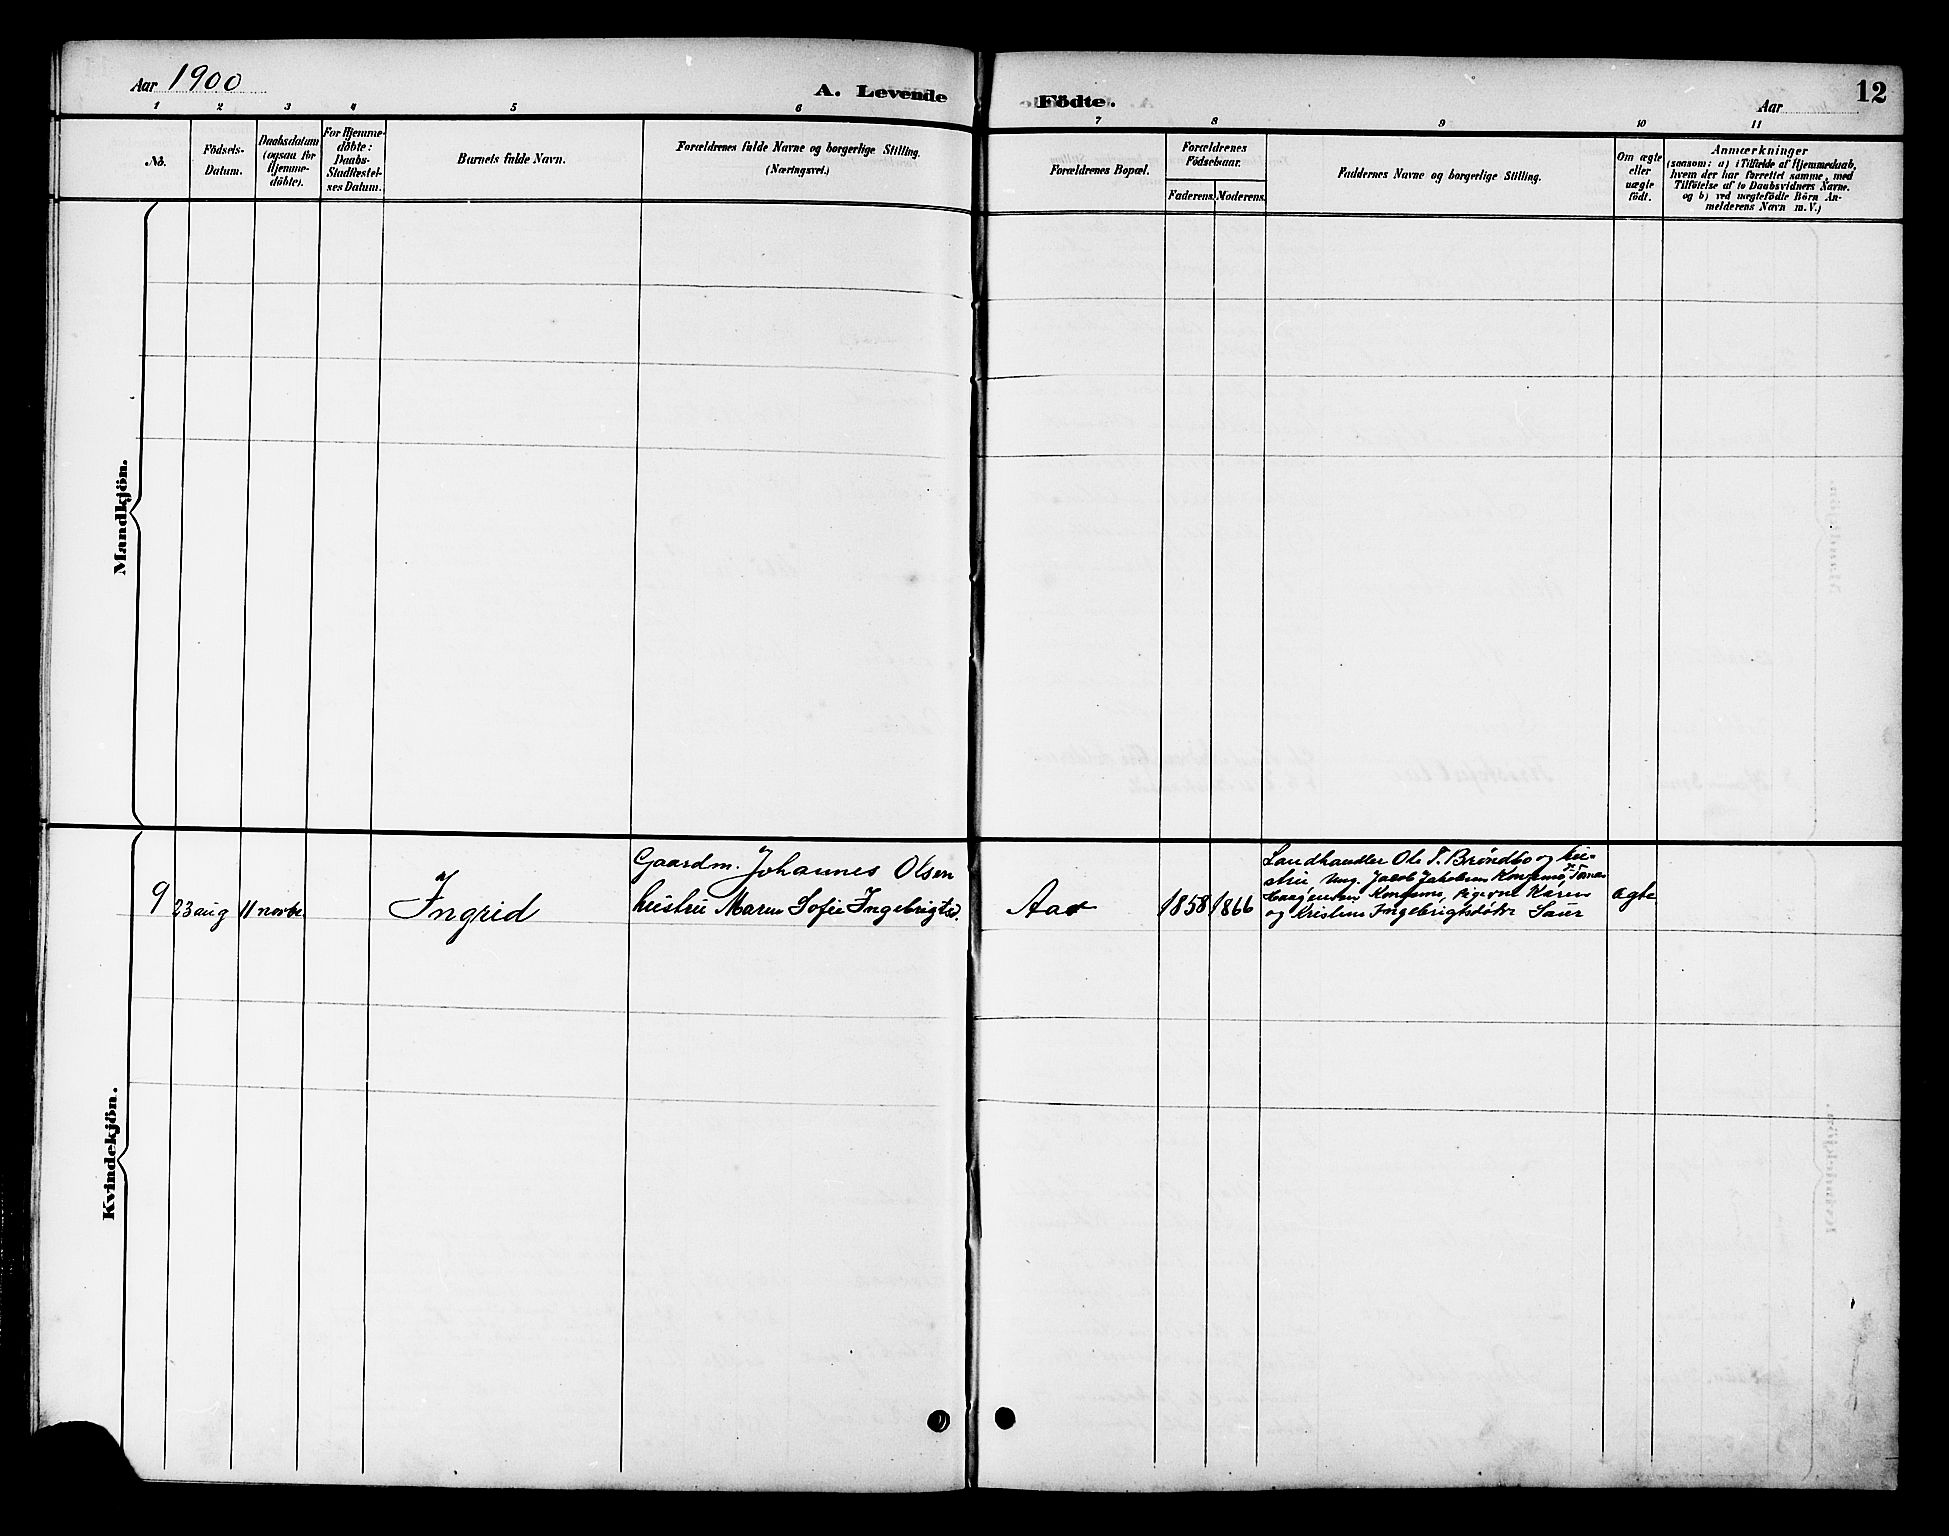 Aar 1900
A. Levende
Födte.
Aar
12
1 2 3 4 5 6 7 8 9 10 11
No.
Födsels-
Datum.
Daabsdatum
(ogsaa for
Hjemme-
döbte).
For Hjemme-
döbte:
Daabs-
Stadfæstel-
ses Datum.
Barnets fulde Navn.
Forældrenes fulde Navne og borgerlige Stilling.
(Næringsvei.)
Forældrenes Bopæl.
Forældrenes
Födselsaar.
Faderens. Moderens.
Faddernes Navne og borgerlige Stilling.
Om ægte
eller
uægte
födt.
Anmærkninger
(saasom: a) i Tilfælde af Hjemmedaab,
hvem der har forrettet samme, med
Tilföielse af to Daabsvidners Navne.
og b) ved uægtefödte Börn An-
melderens Navn m. V.)
Mandkjön.
Kvindekjön.
9
23 aug
11 novbr.
Ingrid
Gaardm. Johannes Olsen
hustru Maren Sofie Ingebrigtsd.
Aar
1858
1866
Landhandler Ole T. Bröndbo og hu-
stru, Ung. Jacob Jakobsen
pigerne Karen
og Kristine Ingebrigtsdötre Saur
ægte